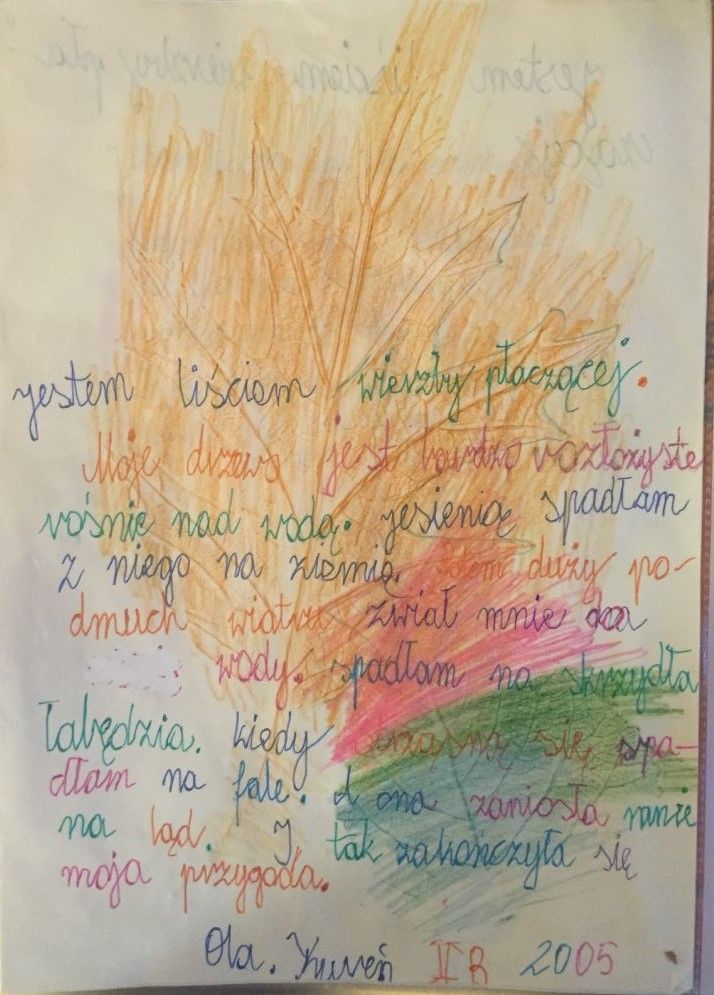 jestem liściem wierzby płaczącej.
Moje drzewo jest bardzo rozłożyste
rośnie nad wodą. jesienią spadłam
z niego na ziemię. Potem duży po-
dmuch wiatru zwiał mnie do
wody. spadłam na skrzydła
łabędzia. kiedy się spa-
dłam na fale. I ona zaniosła mnie
na ląd. I tak zakończyła się
moja przygoda.
Ola. II B 2005